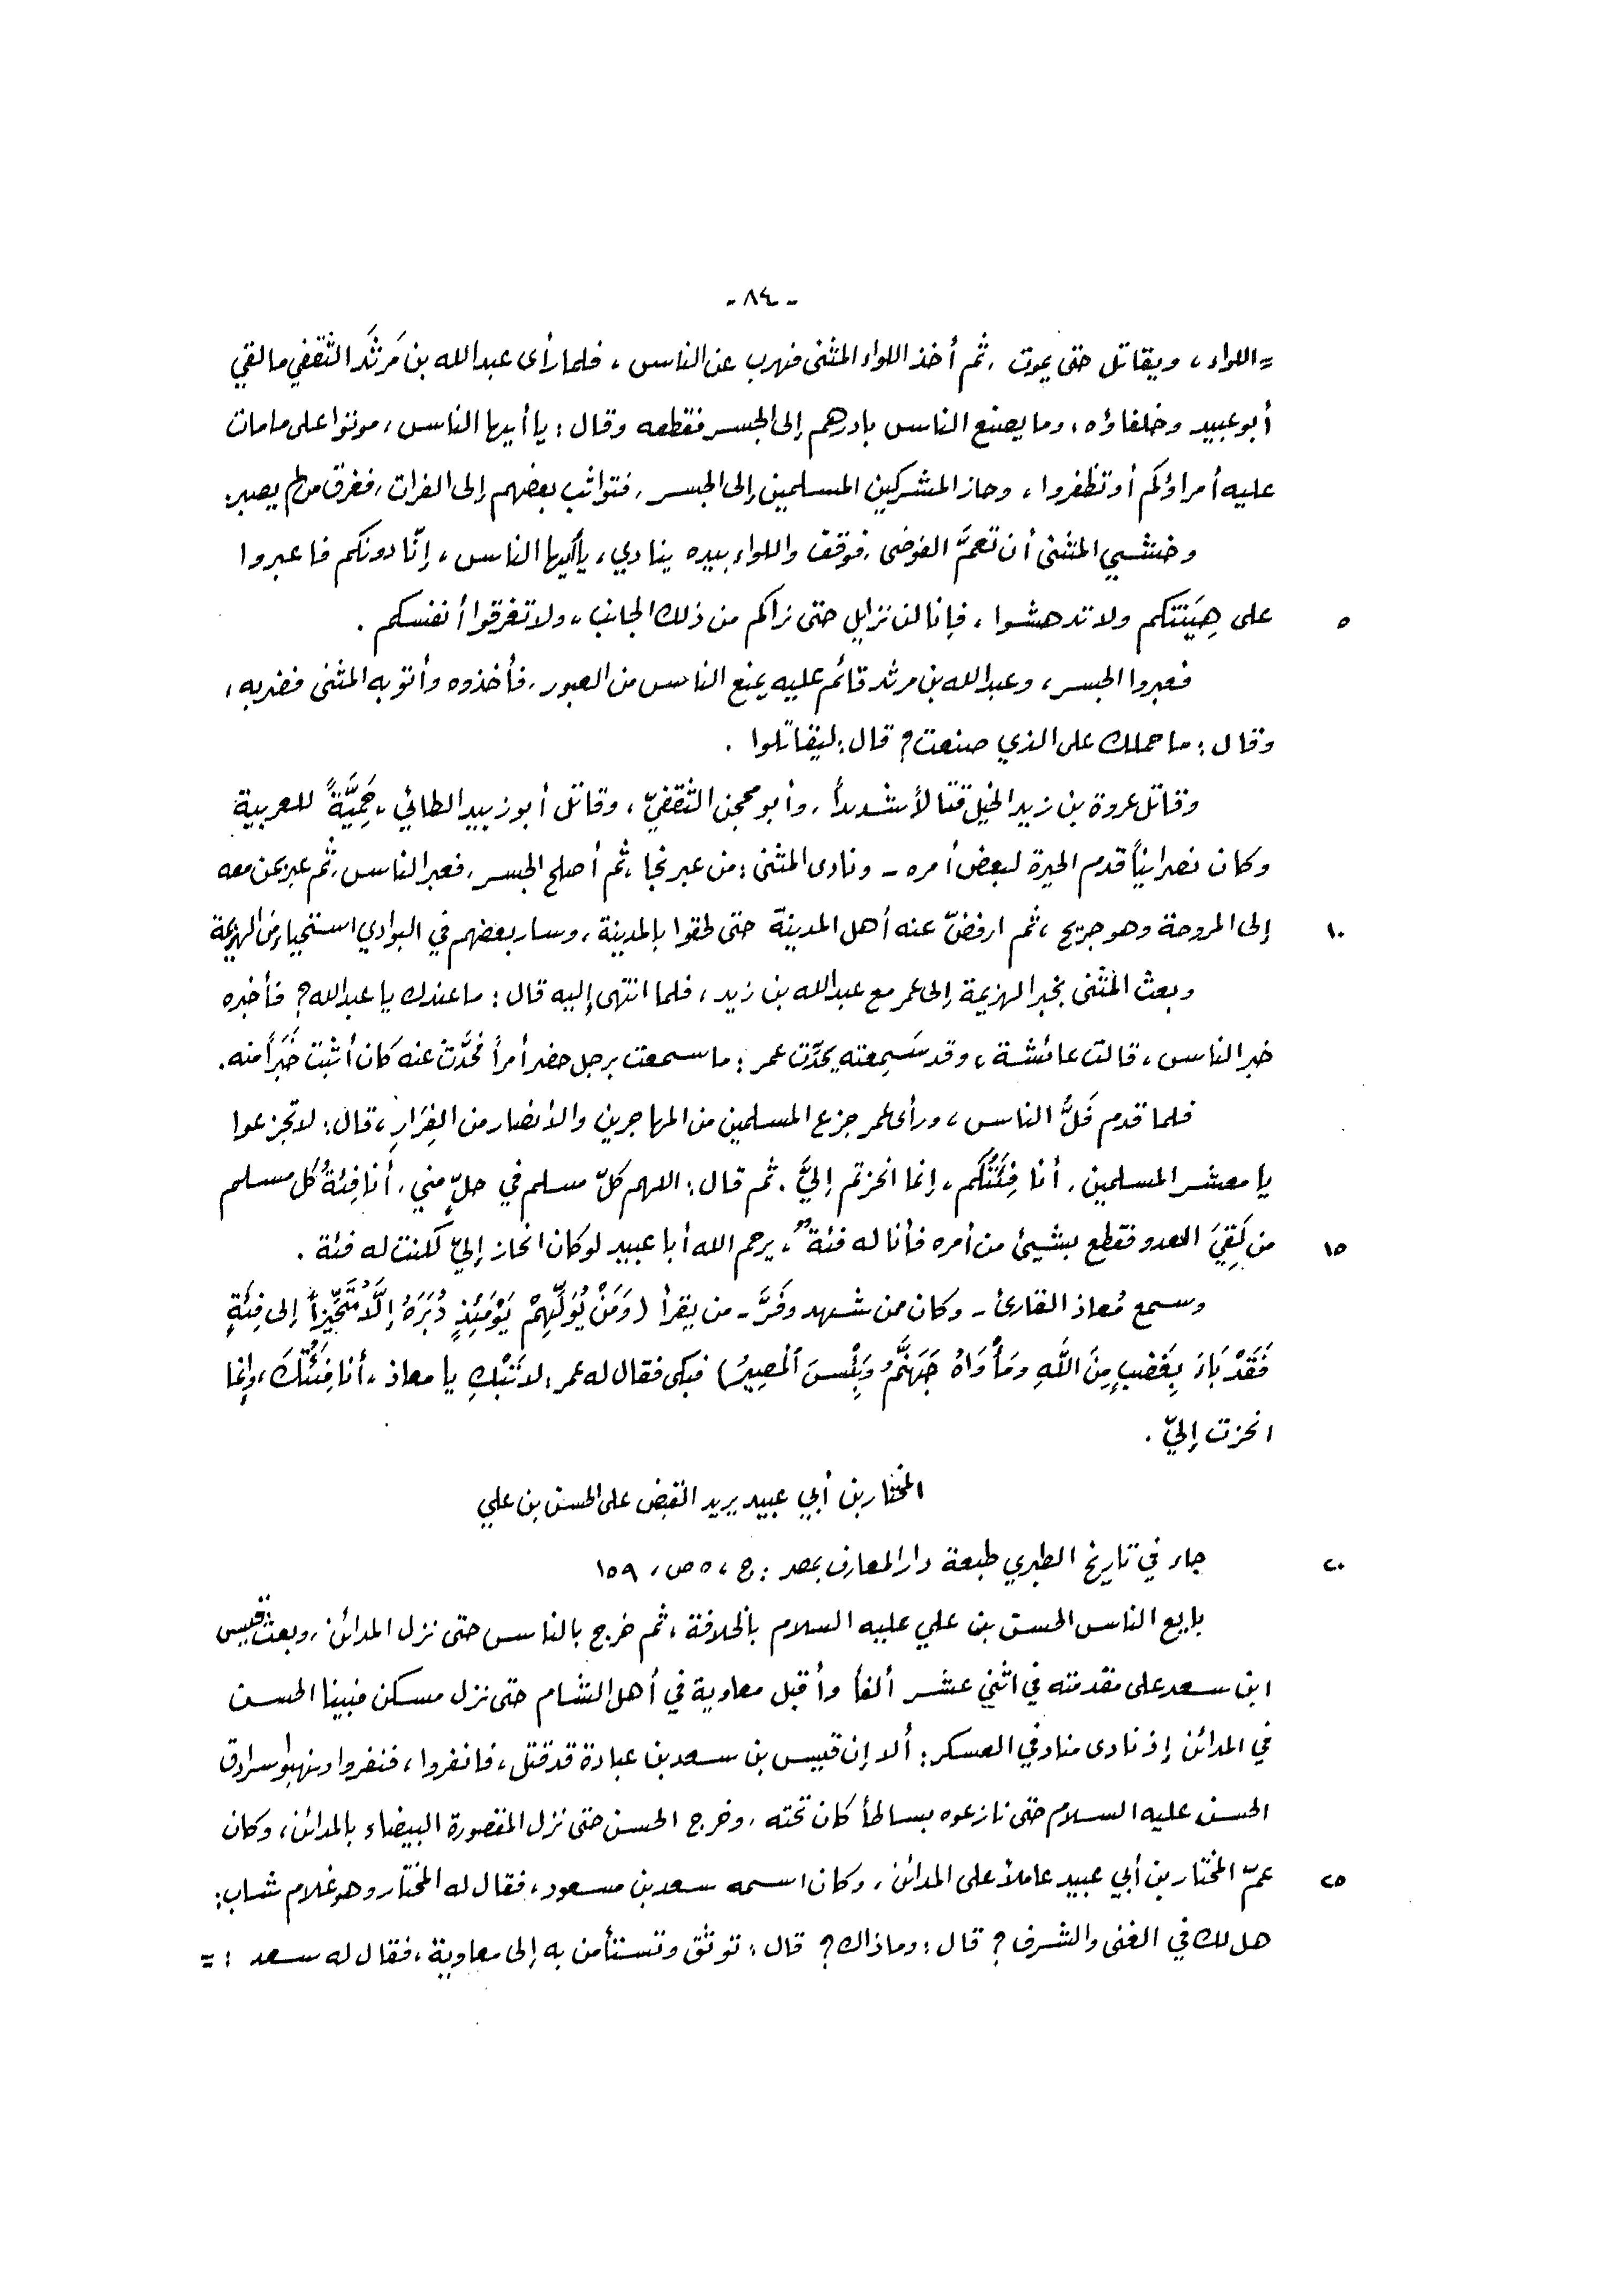 - ٨٤ -
= اللواء، ويقاتل حتى يموت، ثم أخذ اللواء المثنى فهرب عن الناس، فلما رأى عبدالله بن مَرثَد الثقفي ما لقي
أبو عبيد وخلفاؤه، وما يصنع الناس بادرهم إلى الجسر فقطعه وقال: يا أيها الناس، موتوا على ما مات
عليه أمراؤكم أو تظفروا، وحاز المشركين المسلمين إلى الجسر، فتواثب بعضهم إلى الفرات، فغرق من لم يصبر.
وخشي المثنى أن تعمَّ الفوضى، فوقف واللواء بيده ينادي، يا أيها الناس، إنّا دونكم فاعبروا
٥ على هِيَنتكم ولا تدهشوا، فإنا لن نزايل حتى نراكم من ذلك الجانب، ولا تغرقوا أنفسكم.
فعبروا الجسر، وعبدالله بن مرثد قائم عليه يمنع الناس من العبور، فأخذوه وأتوا به المثنى فضربه،
وقال: ما حملك على الذي صنعت؟ قال: ليقاتلوا.
وقاتل عروة بن زيد الخيل قتالاً شديداً، وأبو محجن الثقفيّ، وقاتل أبو زبيد الطائي، حَمِيَّةً للعربية
وكان نصرانياً قدم الحيرة لبعض أمره - ونادى المثنى: من عبر نجا، ثم أصلح الجسر، فعبر الناس، ثم عبر بمن معه
١٠ إلى المروحة وهو جريح، ثم ارفضّ عنه أهل المدينة حتى لحقوا بالمدينة، وسار بعضهم في البوادي استحياء من الهزيمة
وبعث المثنى بخبر الهزيمة إلى عمر مع عبدالله بن زيد، فلما انتهى إليه قال: ما عندك يا عبدالله؟ فأخبره
خبر الناس، قالت عائشة، وقد سَمِعته يحدّث عمر: ما سمعت برجل حضر أمراً فحُدّث عنه كان أثبت خَبَراً منه.
فلما قدم فَلُّ الناس، ورأى عمر جزع المسلمين من المهاجرين والأنصار من الفِرَارِ، قال: لا تجزعوا
يا معشر المسلمين، أنا فِئَتُكم، إنما انحزتم إليَّ. ثم قال: اللهم كلّ مسلم في حلٍّ مني، أنا فِئةُ كل مسلم
١٥ من لَقِيَ العدو فقطع بشيئ من أمره فأنا له فئة، يرحم الله أبا عبيد لو كان انحاز إليّ لكنت له فئة.
وسمع مُعاذ القارئ - وكان ممن شهد وفَرَّ - من يقرأ (وَمَنْ يُوَلِّهِمْ يَوْمَئِذٍ دُبُرَهُ إلَّا مُتَحَيِّزاً إلى فِئَةٍ
فَقَدْ بَاءَ بِغَضَبٍ مِنَ اللَّهِ ومَأْوَاهُ جَهَنَّمُ وَبِئْسَ ٱلْمصِيرُ) فبكى فقال له عمر: لا تَبْكِ يا معاذ، أنا فِئَتُكَ، وإنما
انحزت إليّ.
المختار بن أبي عبيد يريد القبض على الحسن بن علي
٢٠ جاء في تاريخ الطبري طبعة دار المعارف بمصر: ج، ٥ ص، ١٥٩
بايع الناس الحسن بن علي عليه السلام بالخلافة، ثم خرج بالناس حتى نزل المدائن، وبعث قيس
ابن سعد على مقدمته في اثني عشر ألفاً وأقبل معاوية في أهل الشام حتى نزل مسكن فبينا الحسن
في المدائن إذ نادى مناد في العسكر: ألا إن قيس بن سعد بن عبادة قد قتل، فانفروا، فنفروا ونهبوا سرادق
الحسن عليه السلام حتى نازعوه بساطاً كان تحته، وخرج الحسن حتى نزل المقصورة البيضاء بالمدائن، وكان
٢٥ عمّ المختار بن أبي عبيد عاملاً على المدائن، وكان اسمه سعد بن مسعود، فقال له المختار وهو غلام شاب:
هل لك في الغنى والشرف؟ قال: وما ذاك؟ قال: توثق وتستأمن به إلى معاوية، فقال له سعد: =